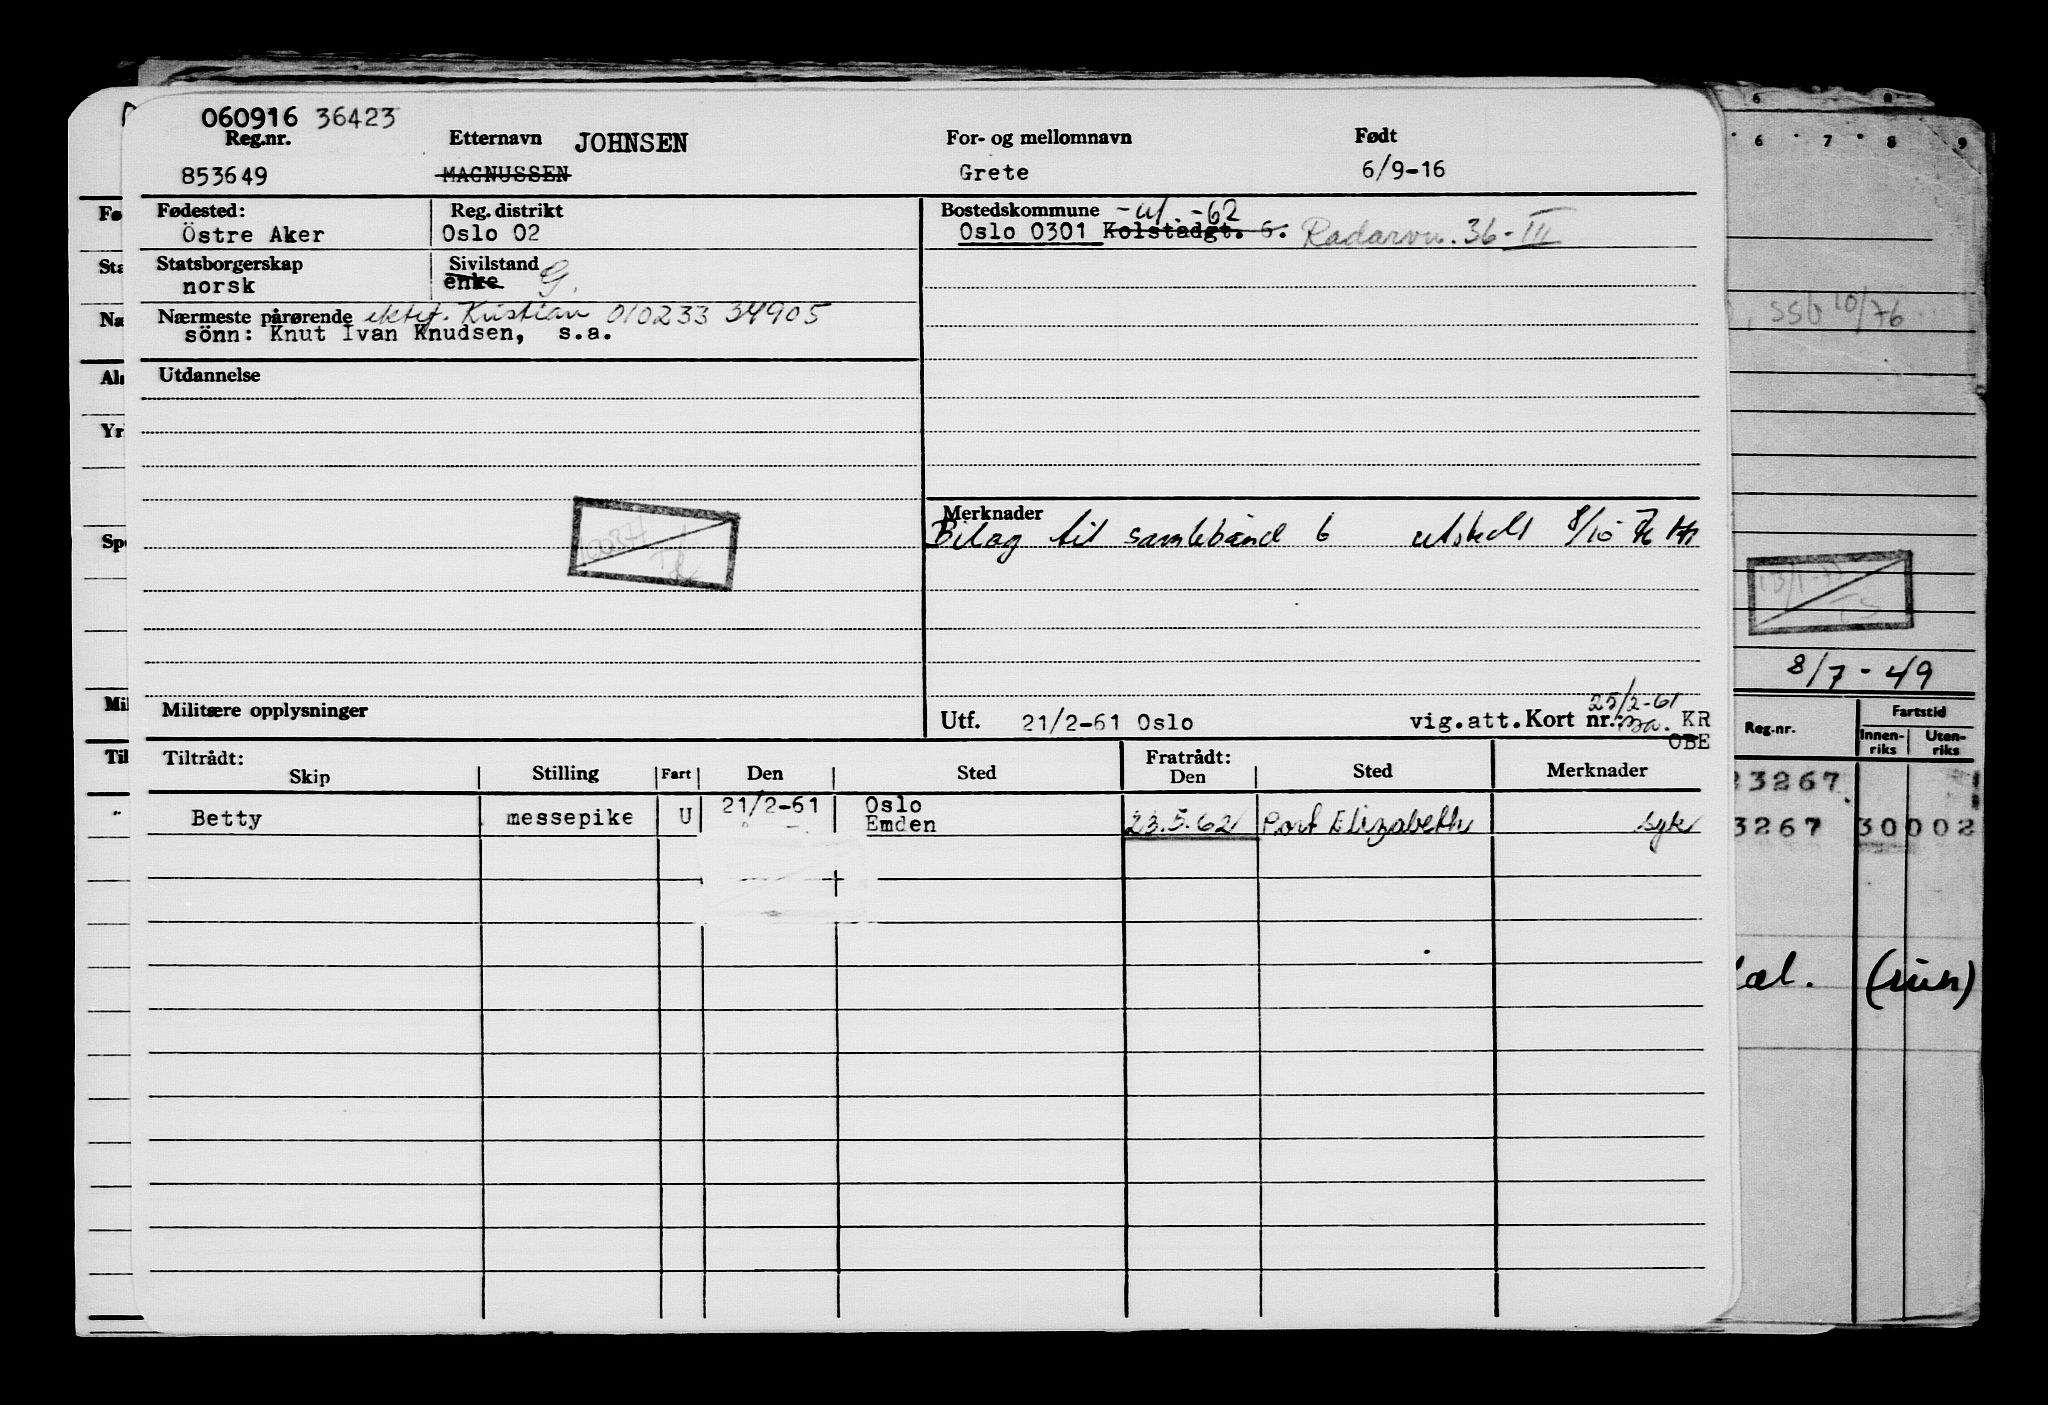 060916 36423
Reg.nr. Etternavn JOHNSEN For- og mellomnavn Født
853649 MAGNUSSEN Grete 6/9-16
Fødested: Reg. distrikt Bostedskommune -62
Östre Aker Oslo 02 Oslo 0301 Kolstadgt. 6. Radarvn. 36-III
Statsborgerskap Sivilstand
norsk enke G.
Nærmeste pårørende ektef. Kristian 010233 34905
sönn: Knut Ivan Knudsen, s.a.
Utdannelse
Merknader
Bilag til samlebånd 6 utstedt 8/10-76
Militære opplysninger
25/2-61
Utf. 21/2-61 Oslo vig.att. Kort nr.: KR
OBE
Tiltrådt: Fratrådt:
Skip Stilling Fart Den Sted Den Sted Merknader
Betty messepike U 21/2-61 Oslo
Emden 23.5.62 Port Elizabeth syk
Fø
Sta
Næ
Yr
Sp
Mil
Til
6 8
6 7 8 9
SSB 10/76
8/7-49
Reg.nr. Fartstid
Innen-
riks Uten-
riks
3267
3267 30 002